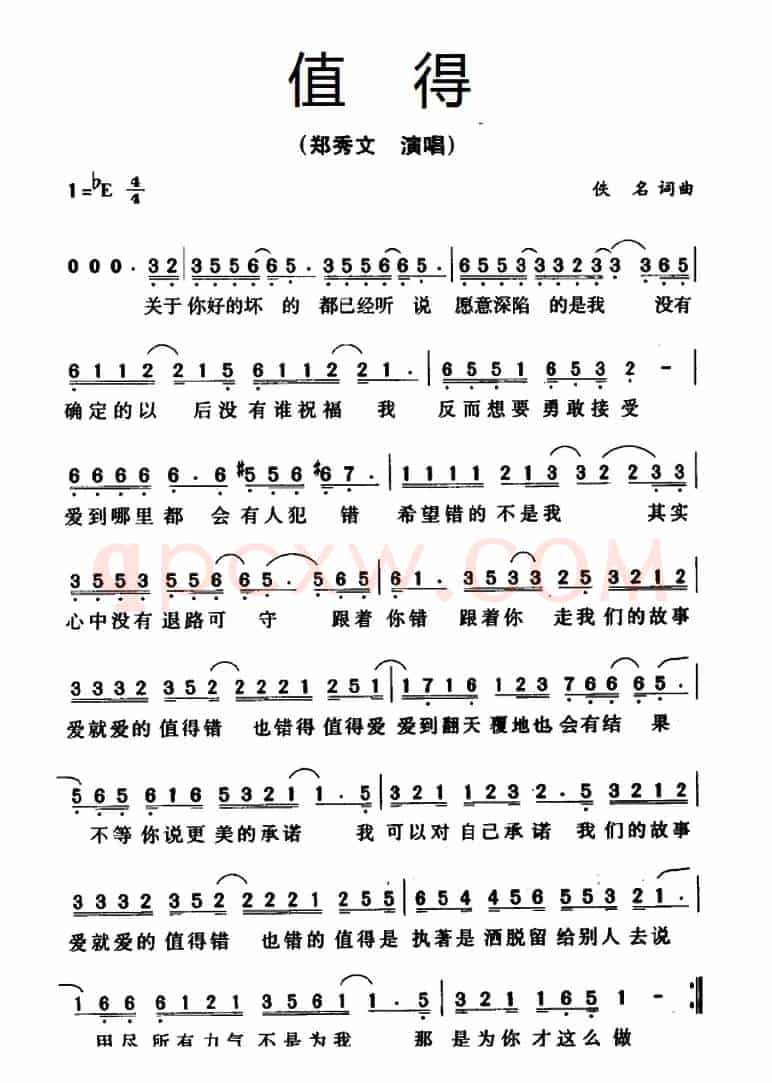 值 得
(郑秀文 演唱)
1=♭E 4/4
佚 名 词曲
0 0 0 . 3 2 3 5 5 6 6 5 . 3 5 5 6 6 5 . 6 5 5 3 3 3 2 3 3 3 6 5
关于你好的坏 的 都已经听 说 愿意深陷 的是我 没有
6 1 1 2 2 1 5 6 1 1 2 2 1 . 6 5 5 1 6 5 3 5 2 -
确定的以 后没有谁祝福 我 反而想要 勇敢接受
6 6 6 6 6 . 6 #5 5 6 #6 7 . 1 1 1 1 2 1 3 3 2 2 3 3
爱到哪里都 会有人犯 错 希望错的 不是我 其实
qpcxw.COM
3 5 5 3 5 5 6 6 5 . 5 6 5 6 1 . 3 5 3 3 2 5 3 2 1 2
心中没有 退路可 守 跟着你错 跟着你 走我们的故事
3 3 3 2 3 5 2 2 2 2 2 1 2 5 1 1 7 1 6 1 2 3 7 6 6 6 5 .
爱就爱的 值得错 也错得 值得爱 爱到翻天 覆地也会有结 果
5 6 5 6 1 6 5 3 2 1 1 . 5 3 2 1 1 2 3 2 . 5 3 2 1 2
不等你说更美的承诺 我可以对自己承诺 我们的故事
3 3 3 2 3 5 2 2 2 2 2 1 2 5 5 6 5 4 4 5 6 5 5 3 2 1 .
爱就爱的 值得错 也错的 值得是 执著是 洒脱留给别人去说
1 6 6 6 1 2 1 2 3 6 1 1 . 5 3 2 1 1 6 5 1 -
用尽所有力气不是为我 那是为你才这么做